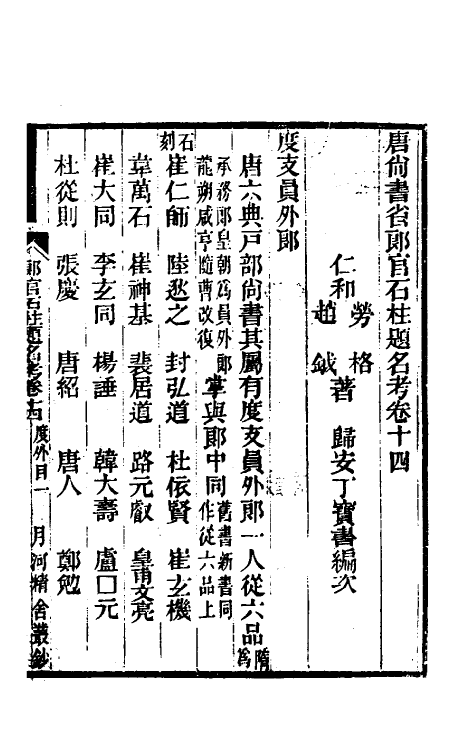 唐尚書省郎官石柱題名考卷十四
仁和 勞格 趙鉞 著 歸安丁寶書編次
度支員外郎
唐六典戸部尚書其屬有度支員外郎一人從六品隋爲
承務郎皇朝爲員外郎
龍朔咸亨隨曹改復
掌與郎中同
舊書新書同
作從六品上
石刻
崔仁師 陸愻之 封弘道 杜依賢 崔玄機
韋萬石 崔神基 裴居道 路元叡 皇甫文亮
崔大同 李玄同 楊諈 韓大壽 盧口元
杜從則 張慶 唐紹 唐人 鄭勉
郎官石柱題名考卷十四 度外目一 月河精舍叢鈔